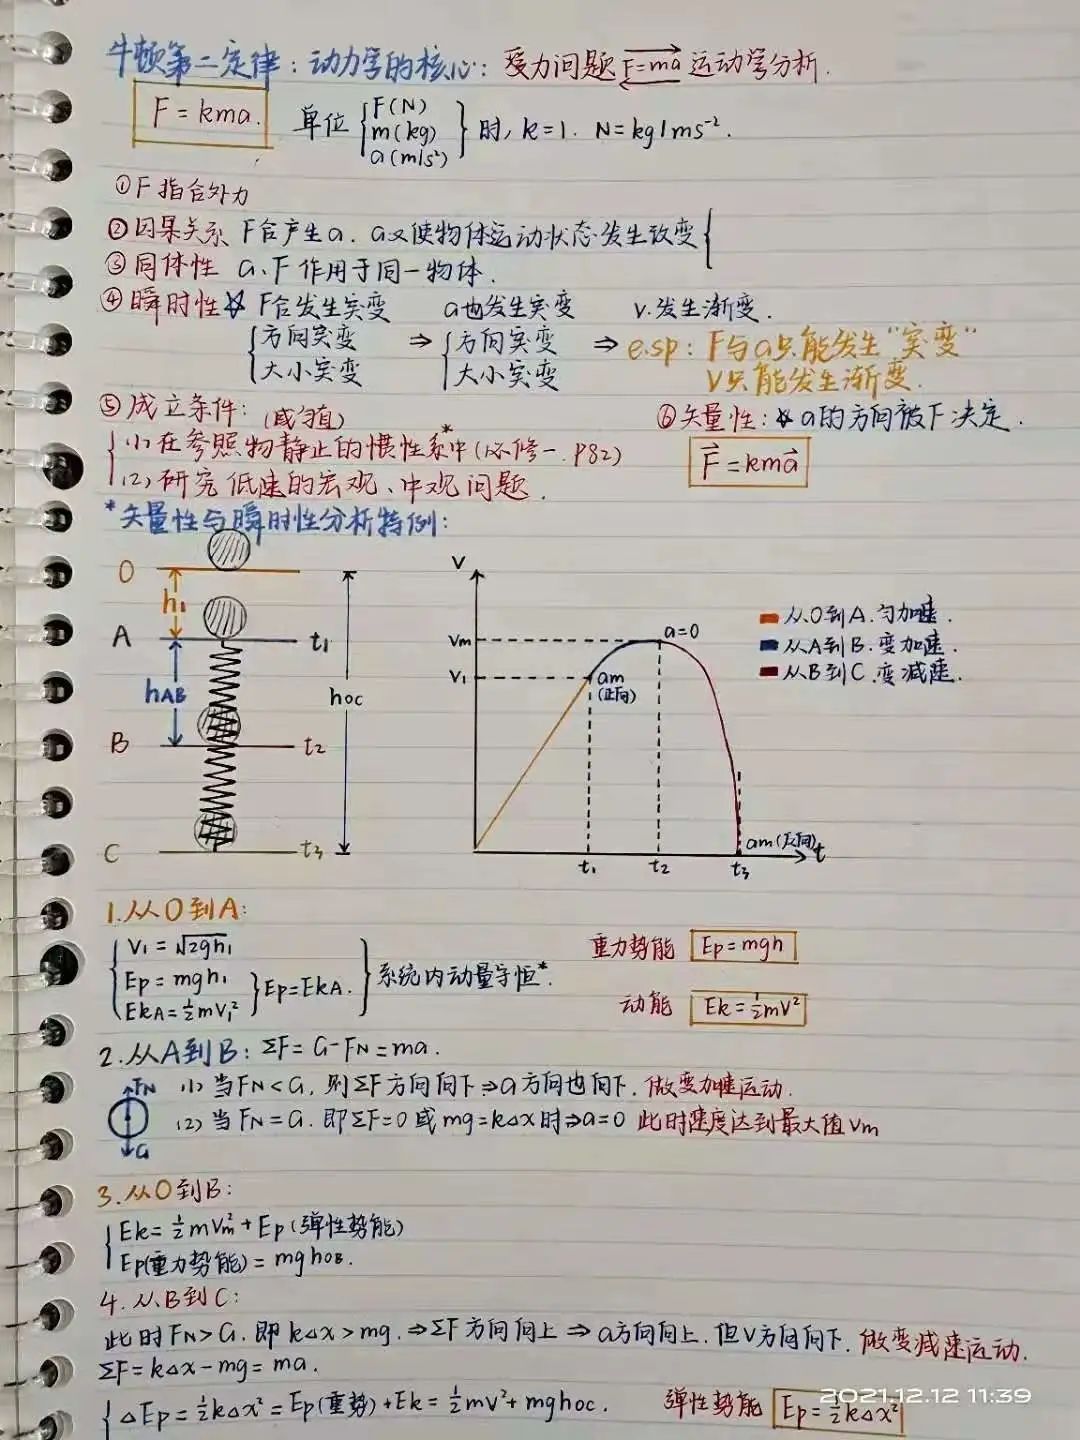 牛顿第二定律：动力学的核心：受力问题 F=ma 运动学分析.
F = kma. 单位 { F(N) m(kg) a(m/s²) } 时, k=1. N=kg/ms⁻².
①F指合外力
②因果关系 F合产生a. a又使物体运动状态发生改变{
③同体性 a、F作用于同一物体.
④瞬时性☆ F合发生突变 a也发生突变 v.发生渐变.
{方向突变 ⇒ {方向突变 ⇒ e.sp: F与a只能发生“突变”
大小突变 大小突变 V只能发生渐变.
⑤成立条件: (成匀直) ⑥矢量性: ☆a的方向被F决定.
{(1)在参照物静止的惯性系中*(必修一.P82) F⃗=kma⃗
(2)研究低速的宏观、中观问题.
*矢量性与瞬时性分析特例:
O h₁
A t₁
hAB hoc
B t₂
C t₃
V
Vm a=0
V₁ am
(正向)
am(反向) t
t₁ t₂ t₃
从O到A.匀加速.
从A到B.变加速.
从B到C.变减速.
1.从O到A:
{V₁=√2gh₁ 重力势能 Ep=mgh
Ep=mgh₁ }Ep=EkA. }系统内动量守恒*.
EkA=½mV₁² 动能 Ek=½mV²
2.从A到B: ΣF=G-FN=ma.
FN (1)当FN<G,则ΣF方向向下⇒a方向也向下,做变加速运动.
G (2)当FN=G.即ΣF=0或mg=kΔx时⇒a=0 此时速度达到最大值Vm
3.从O到B:
{Ek=½mVm²+Ep(弹性势能)
Ep(重力势能)=mghOB.
4.从B到C:
此时FN>G.即kΔx>mg.⇒ΣF方向向上⇒a方向向上.但V方向向下.做变减速运动.
ΣF=kΔx-mg=ma.
{ΔEp=½kΔx²=Ep(重势)+Ek=½mV²+mghoc. 弹性势能 Ep=½kΔx²
2021.12.12 11:39